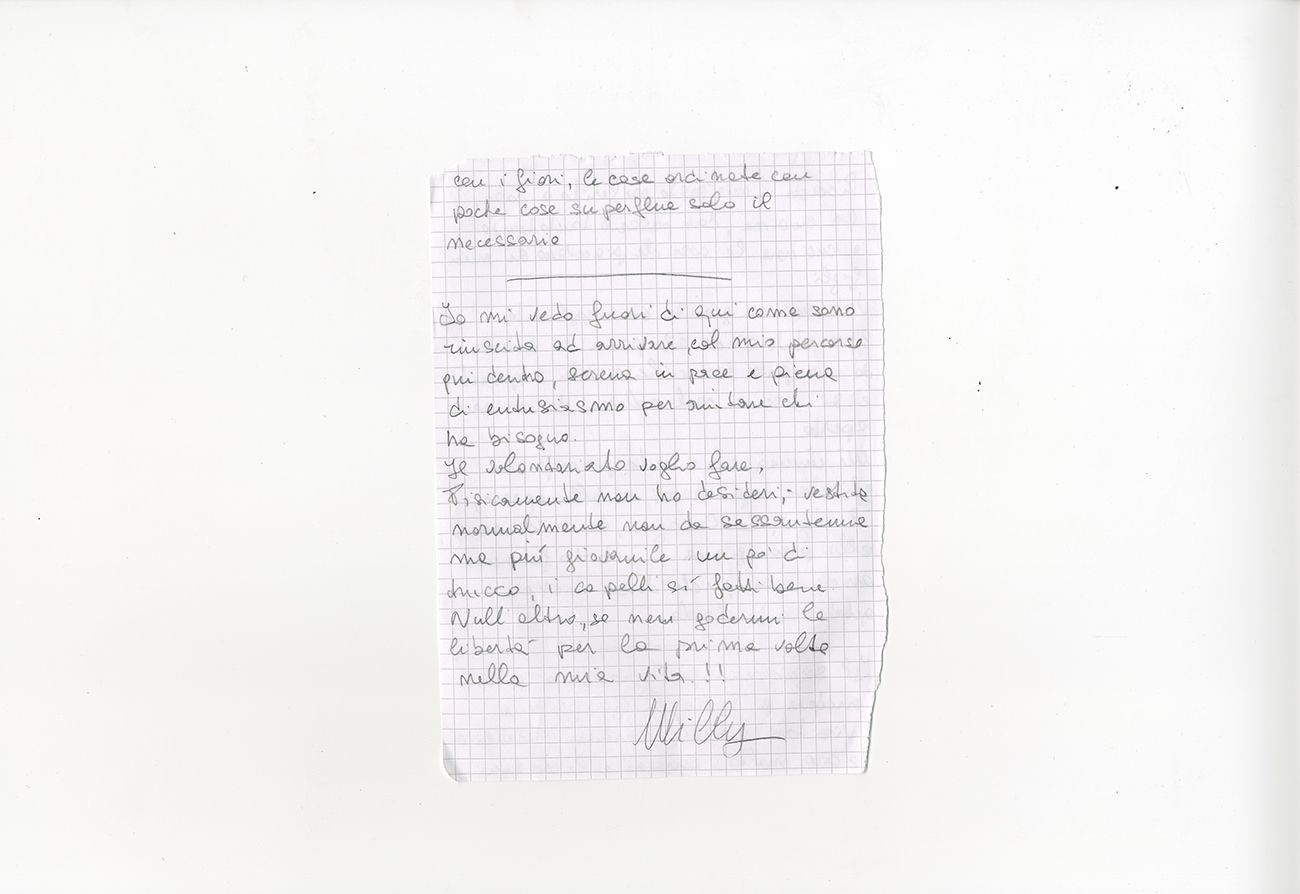 con i fiori, le case ordinate con
poche cose superflue solo il
necessario
Io mi vedo fuori di qui come sono
riuscita ad arrivare, col mio percorso
qui dentro, serena in pace e piena
di entusiasmo per aiutare chi
ha bisogno.
Il volontariato voglio fare,
Fisicamente non ho desideri,- vestita
normalmente non da sessantenne
ma piú giovanile un po' di
trucco, i capelli sí fatti bene
Null'altro, se non godermi la
libertà per la prima volta
nella mia vita.!!
Milly